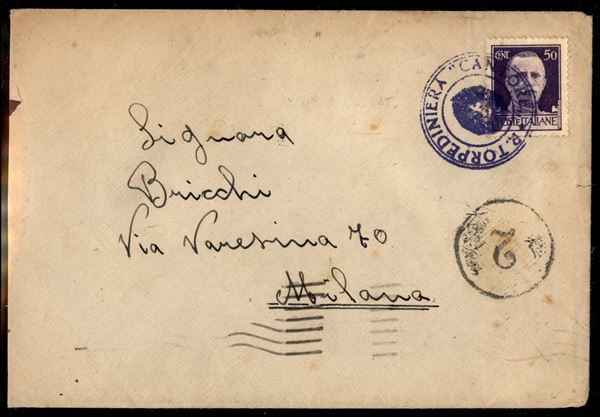 CENT. 50
POSTE ITALIANE
R. TORPEDINIERA "CANTORE"
Signora
Bricchi
Via Varesina 70
Milano
2